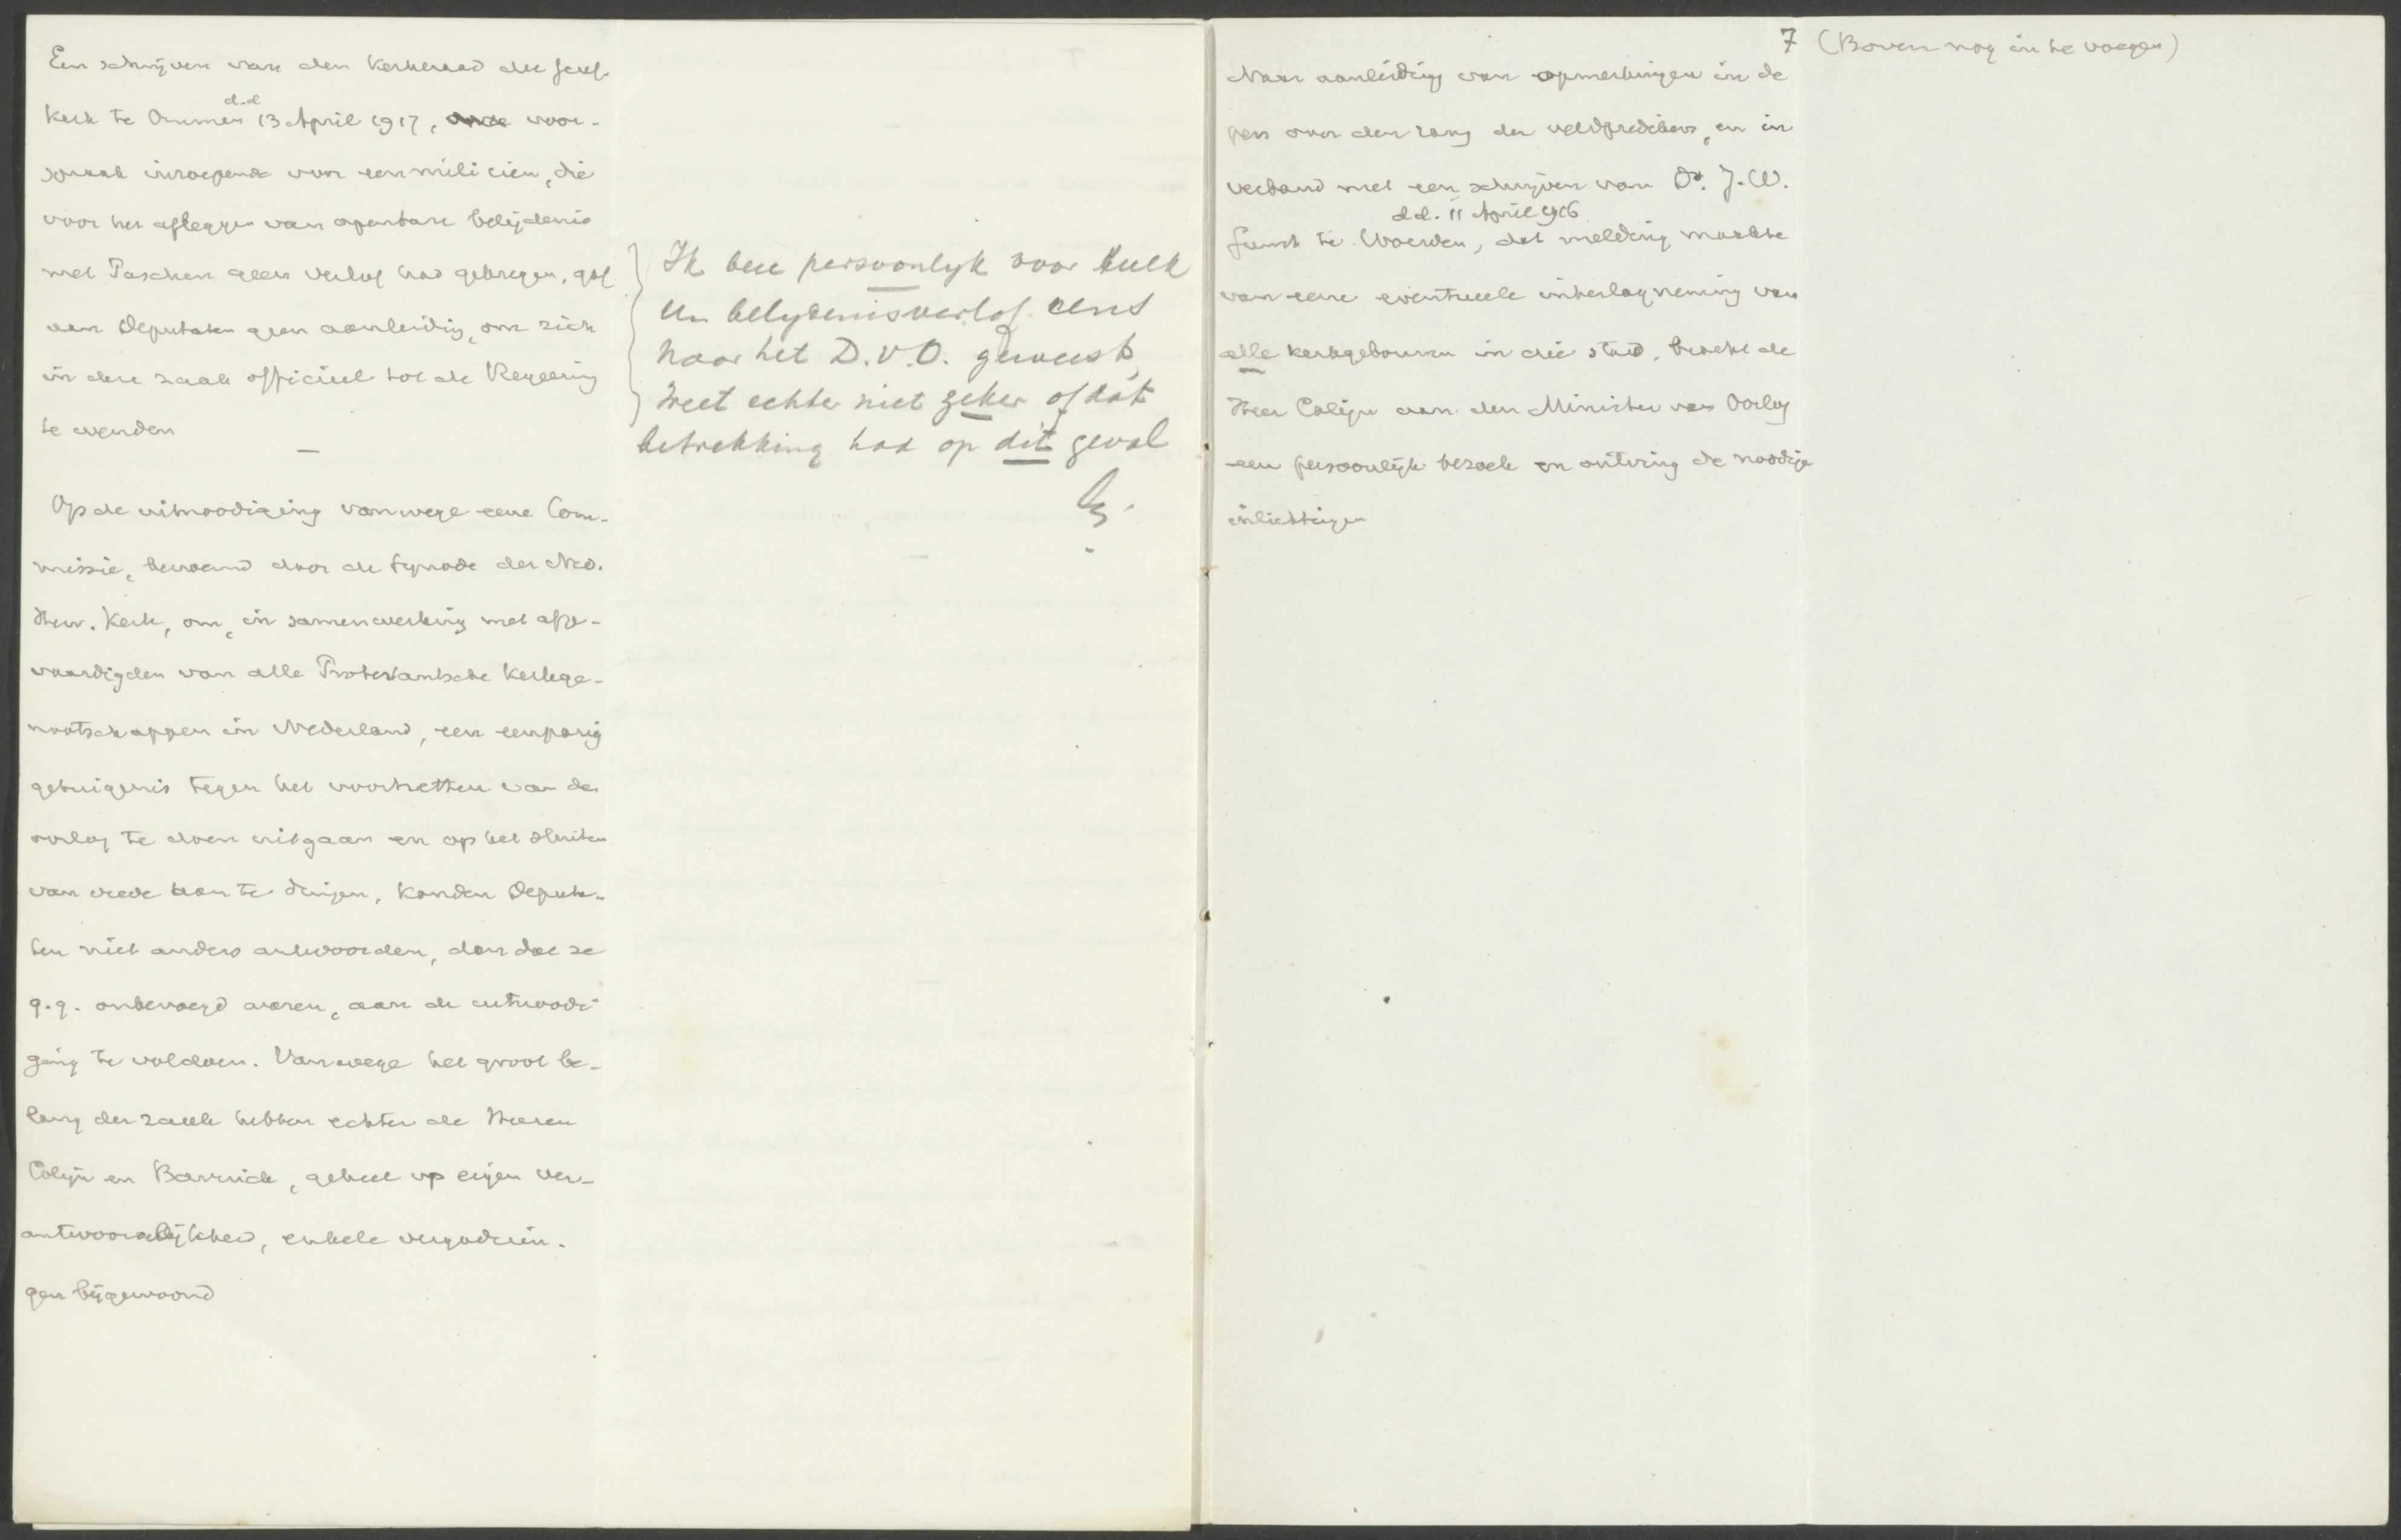 Een schrijven van den Kerkeraad der Geref.
Kerk te Ommen d.d. 13 April 1917, voor-
spraak inroepende voor een milicien, die
voor het afleggen van openbare belijdenis
met Paschen geen verlof had gekregen, gaf
aan Deputaten geen aanleiding, om zich
in deze zaak officieel tot de Regeering
te wenden
—
Op de uitnoodiging vanwege eene Com-
missie, benoemd door de Synode der Ned.
Herv. Kerk, om, in samenwerking met afge-
vaardigden van alle Protestantsche Kerkge-
nootschappen in Nederland, een eenparig
getuigenis tegen het voortzetten van den
oorlog te doen uitgaan en op het sluiten
van vrede aan te dringen, konden Deputa-
ten niet anders antwoorden, dan dat ze
q.q. onbevoegd waren, aan de uitnoodi-
ging te voldoen. Vanwege het groot be-
lang der zaak hebben echter de Heeren
Colijn en Barrick, geheel op eigen ver-
antwoordelijkheid, enkele vergaderin-
gen bijgewoond
Ik ben persoonlijk voor zulk
een belydenisverlof eens
naar het D.v.O. geweest,
weet echter niet zeker of dat
betrekking had op dit geval
7 (Boven nog in te voegen)
Naar aanleiding van opmerkingen in de
pers over den rang der veldpredikers, en in
verband met een schrijven van Ds. J.W.
te Woerden, d.d. 11 April 1916 dat melding maakte
van eene eventueele inbeslagneming van
alle kerkgebouwen in die stad, bracht de
Heer Colijn aan den Minister van Oorlog
een persoonlijk bezoek en ontving de noodige
inlichtingen